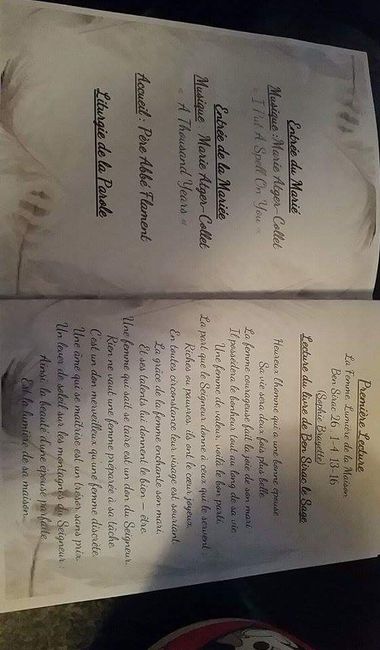 Entrée du Marié
Musique : Marie Alger-Collet
« I Put A Spell On You »
Entrée de la Mariée
Musique : Marie Alger-Collet
« A Thousand Years »
Accueil : Père Abbé Flament
Liturgie de la Parole
Première Lecture
La Femme, Lumière de la Maison
Ben Sirac 26 1-4 13-16
(Sophie Brayette)
Lecture du livre de Ben Sirac le Sage
Heureux l'homme qui a une bonne épouse,
Sa vie sera deux fois plus belle.
La femme courageuse fait la joie de son mari
Il possèdera le bonheur tout au long de sa vie
Une femme de valeur, voilà le bon parti,
La part que le Seigneur donne à ceux qui le servent :
Riches ou pauvres, ils ont le cœur joyeux,
En toutes circonstance leur visage est souriant.
La grâce de la femme enchante son mari
Et ses talents lui donnent le bien – être
Une femme qui sait se taire est un don du Seigneur.
Rien ne vaut une femme préparée à sa tâche
C'est un don merveilleux qu'une femme discrète.
Une âme qui se maîtrise est un trésor sans prix.
Un lever de soleil sur les montagnes du Seigneur :
Ainsi la beauté d'une épouse parfaite
Est la lumière de sa maison.